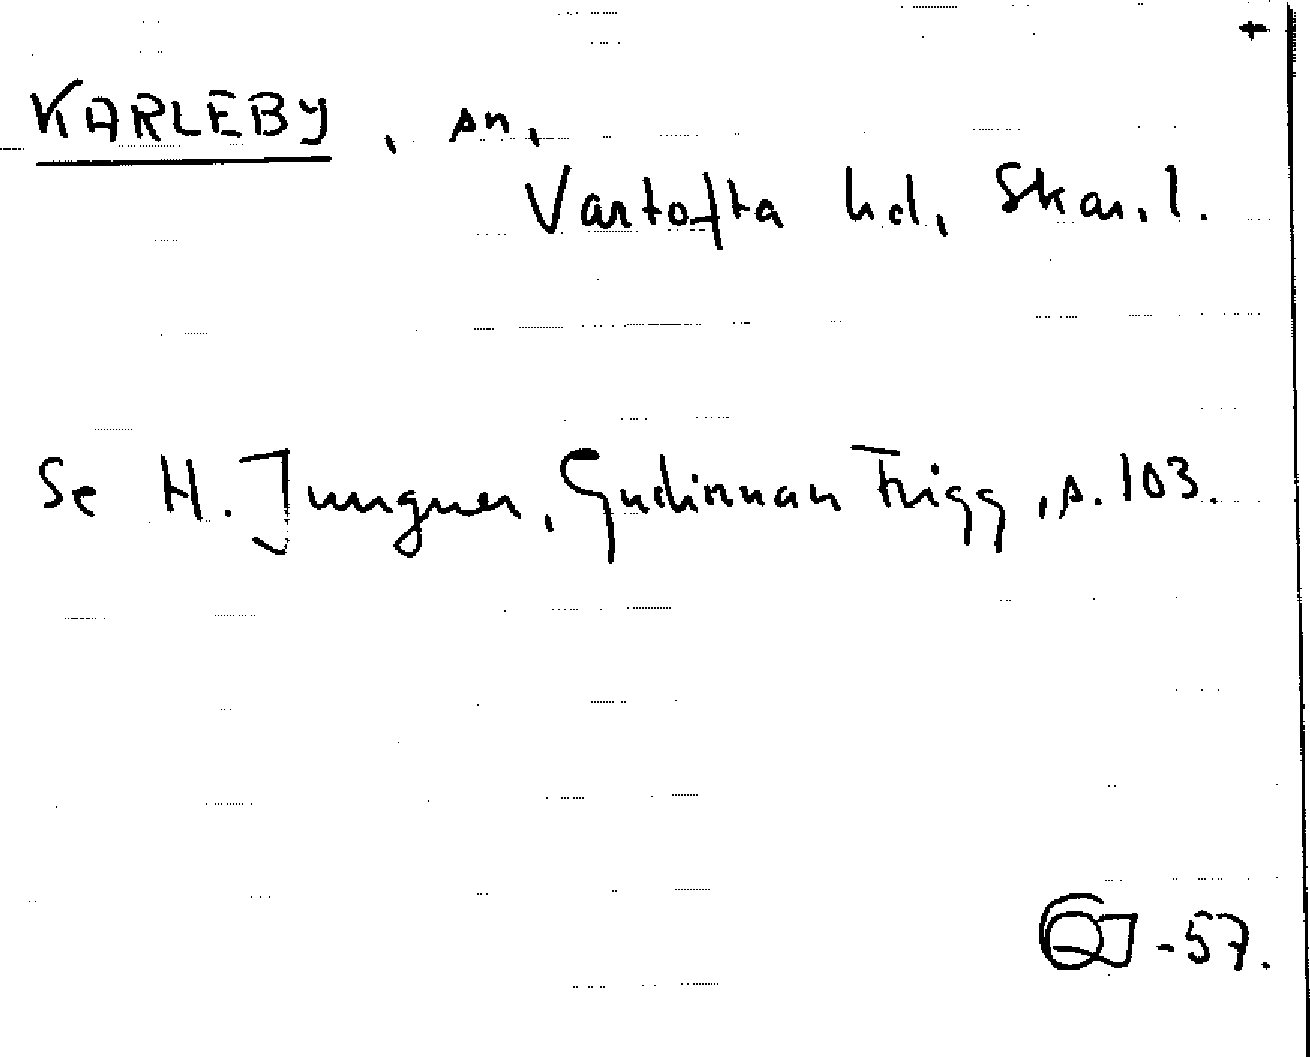 KARLEBY, sn,
Vartofta hd, Skar.l.
Se H. Jungner, Gudinnan Frigg, s. 103.
-57.